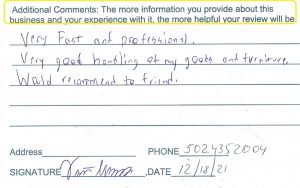 Additional Comments: The more information you provide about this
business and your experience with it, the more helpful your review will be
Very Fast and professional.
Very good handling of my goods and furniture.
Would recommend to friend.
Address PHONE 5024352004
SIGNATURE DATE 12/18/21